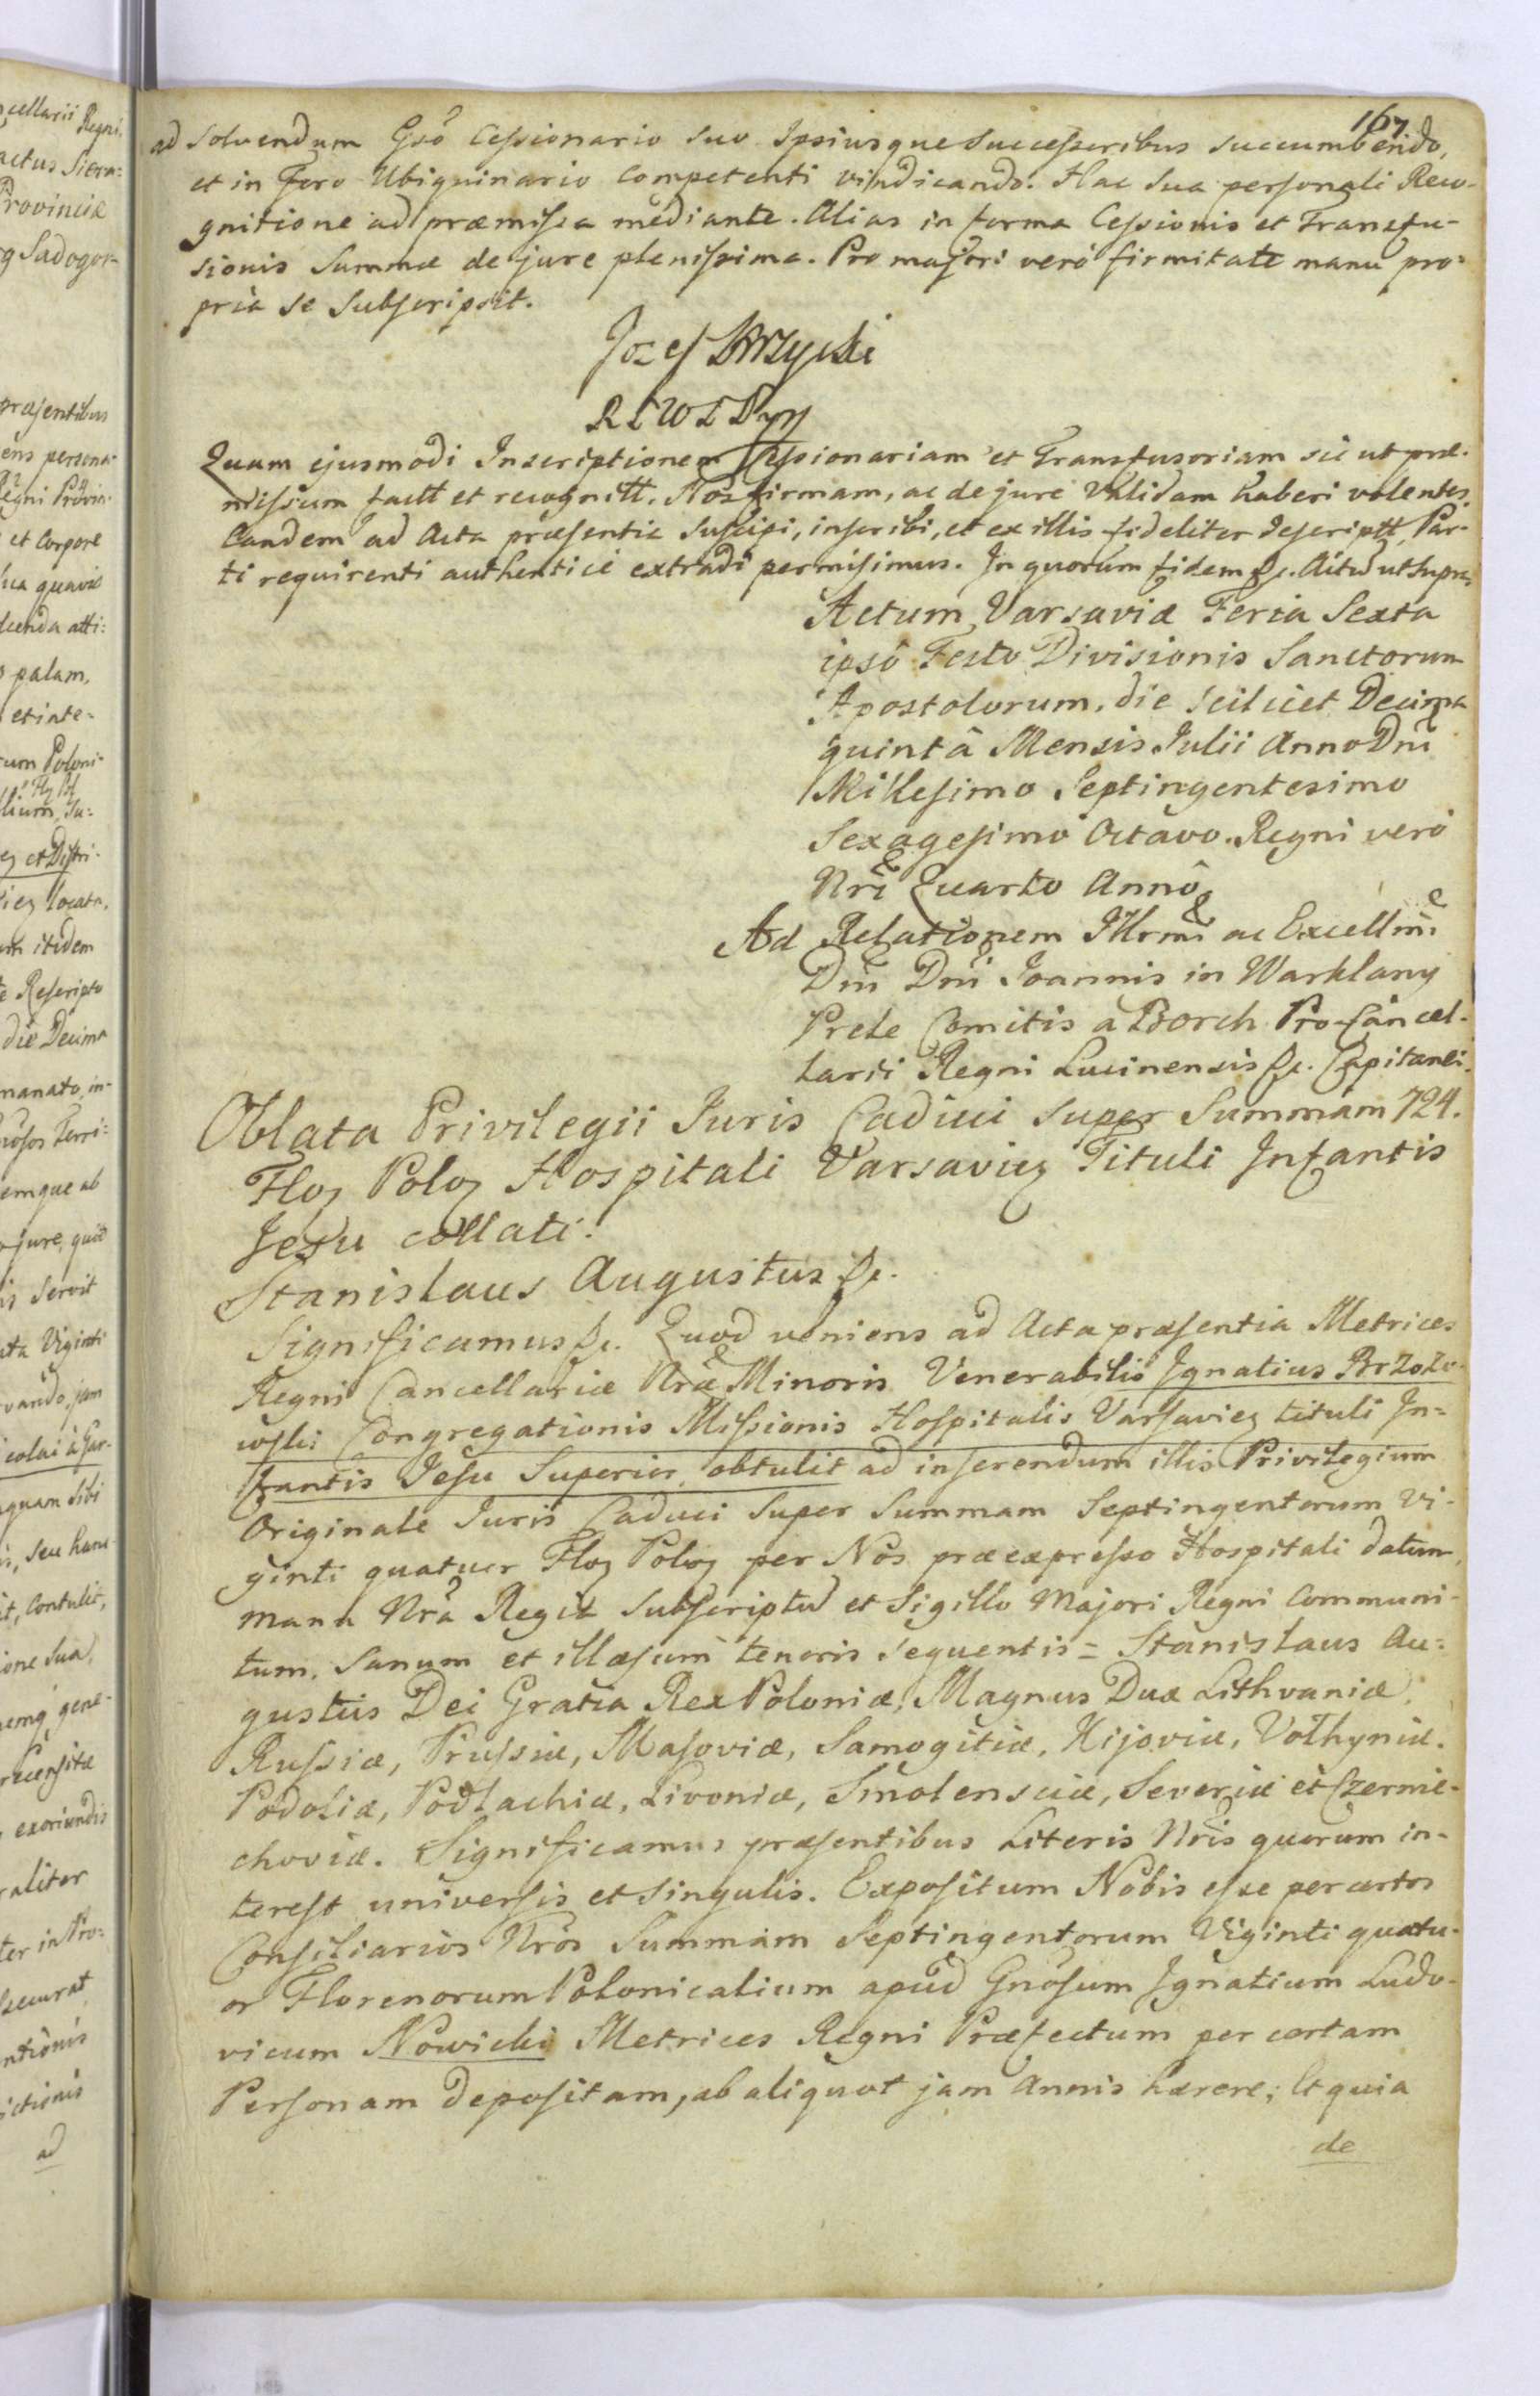 167
ad solvendum Gsõ Cessionario suo Ipsiusque Successoribus succumbendo,
et in Foro Ubiquinario Competenti vindicando. Hac sua personali Reco-
gnitione ad præmissa mediante. Alias in forma Cessionis et Transfu-
sionis Summæ de jure plenissima. Pro majori verò firmitate manu pro-
pria se subscripsit.
Jozef
Quam ejusmodi Inscriptionem Cessionariam et Transfusoriam sic ut præ-
missum factt et recognitt. Nos firmam, ac de jure Validam haberi volentes,
Eandem ad Acta præsentia suscipi, inscribi, et ex illis fideliter descriptt, Par-
ti requirenti authentice extradi permisimus. In quorum fidem &c. Actũ ut supra
Actum Varsaviæ Feria Sexta
ipsô Festo Divisionis Sanctorum
Apostolorum, die scilicet Decima
quintâ Mensis Julii Anno Dni
Millesimo Septingentesimo
Sexagesimo Octavo. Regni verò
Nri Quarto Annô
Ad Relationem Illrmi ac Excellmi
Dni Dni Joannis in Warklany
Prele Comitis à Borch Pro-Cancel-
larii Regni Lucinensis &c. Capitanei.
Oblata Privilegii Juris Caduci super Summam 724.
Floꝝ Poloꝝ Hospitali Varsavieꝝ Tituli Infantis
Jesu collati.
Stanislaus Augustus &c.
Significamus &c. Quod veniens ad Acta præsentia Metrices
Regni Cancellariæ Nræ Minoris Venerabilis Ignatius Brzozo-
wski Congregationis Missionis Hospitalis Varsavieꝝ tituli In-
fantis Jesu Superior, obtulit ad inserendum illis Privilegium
Originale Juris Caduci super summam Septingentorum Vi-
ginti quatuor Floꝝ Poloꝝ per Nos præexpresso Hospitali datum,
manu Nrâ Regia subscriptũ et Sigillo Majori Regni Communi-
tum, sanum et illæsum tenoris sequentis = Stanislaus Au-
gustus Dei Gratia Rex Poloniæ, Magnus Dux Lithvaniæ,
Russiæ, Prussiæ, Masoviæ, Samogitiæ, Kijoviæ, Volhyniæ,
Podoliæ, Podlachiæ, Livoniæ, Smolensciæ, Severiæ et Czernie-
choviæ. Significamus præsentibus Literis Nris quorum in-
terest universis et singulis. Expositum Nobis esse per certos
Consiliarios Nros Summam Septingentorum Viginti quatu-
or Florenorum Polonicalium apud Gnosum Ignatium Ludo-
vicum Nowicki Metrices Regni Præfectum per certam
Personam depositam, ab aliquot jam Annis hærere; Et quia
de